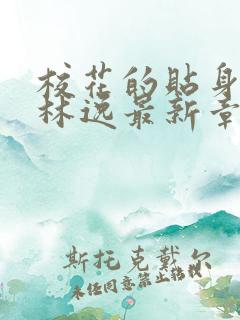 校花的贴身
林逸最新章
斯托克戴尔
未经同意禁止转载